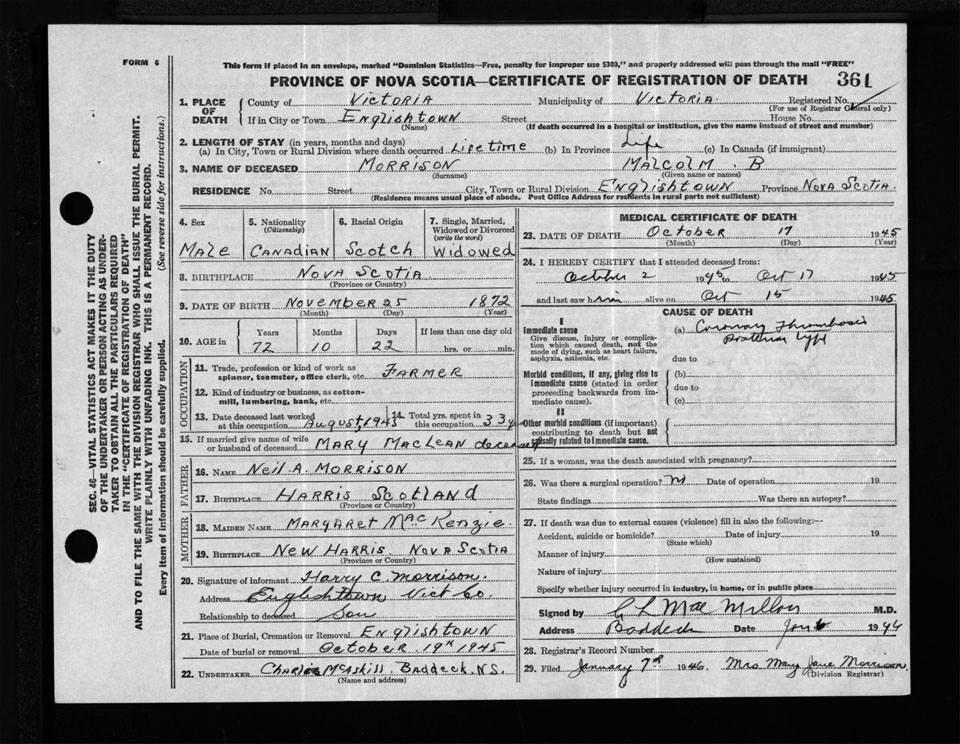 FORM 6
This form if placed in an envelope, marked "Dominion Statistics—Free, penalty for improper use $300," and properly addressed will pass through the mail "FREE"
PROVINCE OF NOVA SCOTIA—CERTIFICATE OF REGISTRATION OF DEATH 361
1. PLACE OF DEATH County of Victoria Municipality of Victoria Registered No.
(For use of Registrar General only)
If in City or Town Englishtown Street House No.
(Name) (If death occurred in a hospital or institution, give the name instead of street and number)
2. LENGTH OF STAY (in years, months and days)
(a) In City, Town or Rural Division where death occurred Lifetime (b) In Province Life (c) In Canada (if immigrant)
3. NAME OF DECEASED MORRISON MALCOLM . B
(Surname) (Given name or names)
RESIDENCE No. Street City, Town or Rural Division Englishtown Province Nova Scotia.
(Residence means usual place of abode. Post Office Address for residents in rural parts not sufficient)
4. Sex Male
5. Nationality (Citizenship) Canadian
6. Racial Origin Scotch
7. Single, Married, Widowed or Divorced (write the word) Widowed
8. BIRTHPLACE Nova Scotia
(Province or Country)
9. DATE OF BIRTH November 25 1872
(Month) (Day) (Year)
10. AGE in Years 72 Months 10 Days 22 If less than one day old hrs. or min.
OCCUPATION
11. Trade, profession or kind of work as spinner, teamster, office clerk, etc. Farmer
12. Kind of industry or business, as cotton-mill, lumbering, bank, etc.
13. Date deceased last worked at this occupation August 1943 14. Total yrs. spent in this occupation 33
15. If married give name of wife or husband of deceased Mary MacLean deceased
FATHER
16. NAME Neil A. Morrison
17. BIRTHPLACE Harris Scotland
(Province or Country)
MOTHER
18. MAIDEN NAME Margaret MacKenzie.
19. BIRTHPLACE New Harris. Nova Scotia
(Province or Country)
20. Signature of informant Harry C. Morrison.
Address Englishtown Vict Co.
Relationship to deceased Son
21. Place of Burial, Cremation or Removal Englishtown
Date of burial or removal October 19th 1945
22. UNDERTAKER Charles McAskill. Baddeck. N.S.
(Name and address)
MEDICAL CERTIFICATE OF DEATH
23. DATE OF DEATH October 17 1945
(Month) (Day) (Year)
24. I HEREBY CERTIFY that I attended deceased from:
October 2 1945 to Oct 17 1945
and last saw him alive on Oct 15 1945
CAUSE OF DEATH
I
Immediate cause
Give disease, injury or complication which caused death, not the mode of dying, such as heart failure, asphyxia, asthenia, etc.
(a) Coronary Thrombosis
due to
Morbid conditions, if any, giving rise to immediate cause (stated in order proceeding backwards from immediate cause).
(b)
due to
(c)
II
Other morbid conditions (if important) contributing to death but not causally related to immediate cause.
25. If a woman, was the death associated with pregnancy?
26. Was there a surgical operation? No Date of operation 19
State findings Was there an autopsy?
27. If death was due to external causes (violence) fill in also the following:—
Accident, suicide or homicide? Date of injury 19
(State which)
Manner of injury
(How sustained)
Nature of injury
Specify whether injury occurred in industry, in home, or in public place
Signed by C L MacMillan M.D.
Address Baddeck Date Jan 6 1946
28. Registrar's Record Number
29. Filed January 7th 1946. Mrs. Mary Jane Morrison.
(Division Registrar)
SEC. 46—VITAL STATISTICS ACT MAKES IT THE DUTY
OF THE UNDERTAKER OR PERSON ACTING AS UNDER-
TAKER TO OBTAIN ALL THE PARTICULARS REQUIRED
IN THE "CERTIFICATE OF REGISTRATION OF DEATH"
AND TO FILE THE SAME WITH THE DIVISION REGISTRAR WHO SHALL ISSUE THE BURIAL PERMIT.
WRITE PLAINLY WITH UNFADING INK. THIS IS A PERMANENT RECORD.
Every item of information should be carefully supplied. (See reverse side for instructions.)